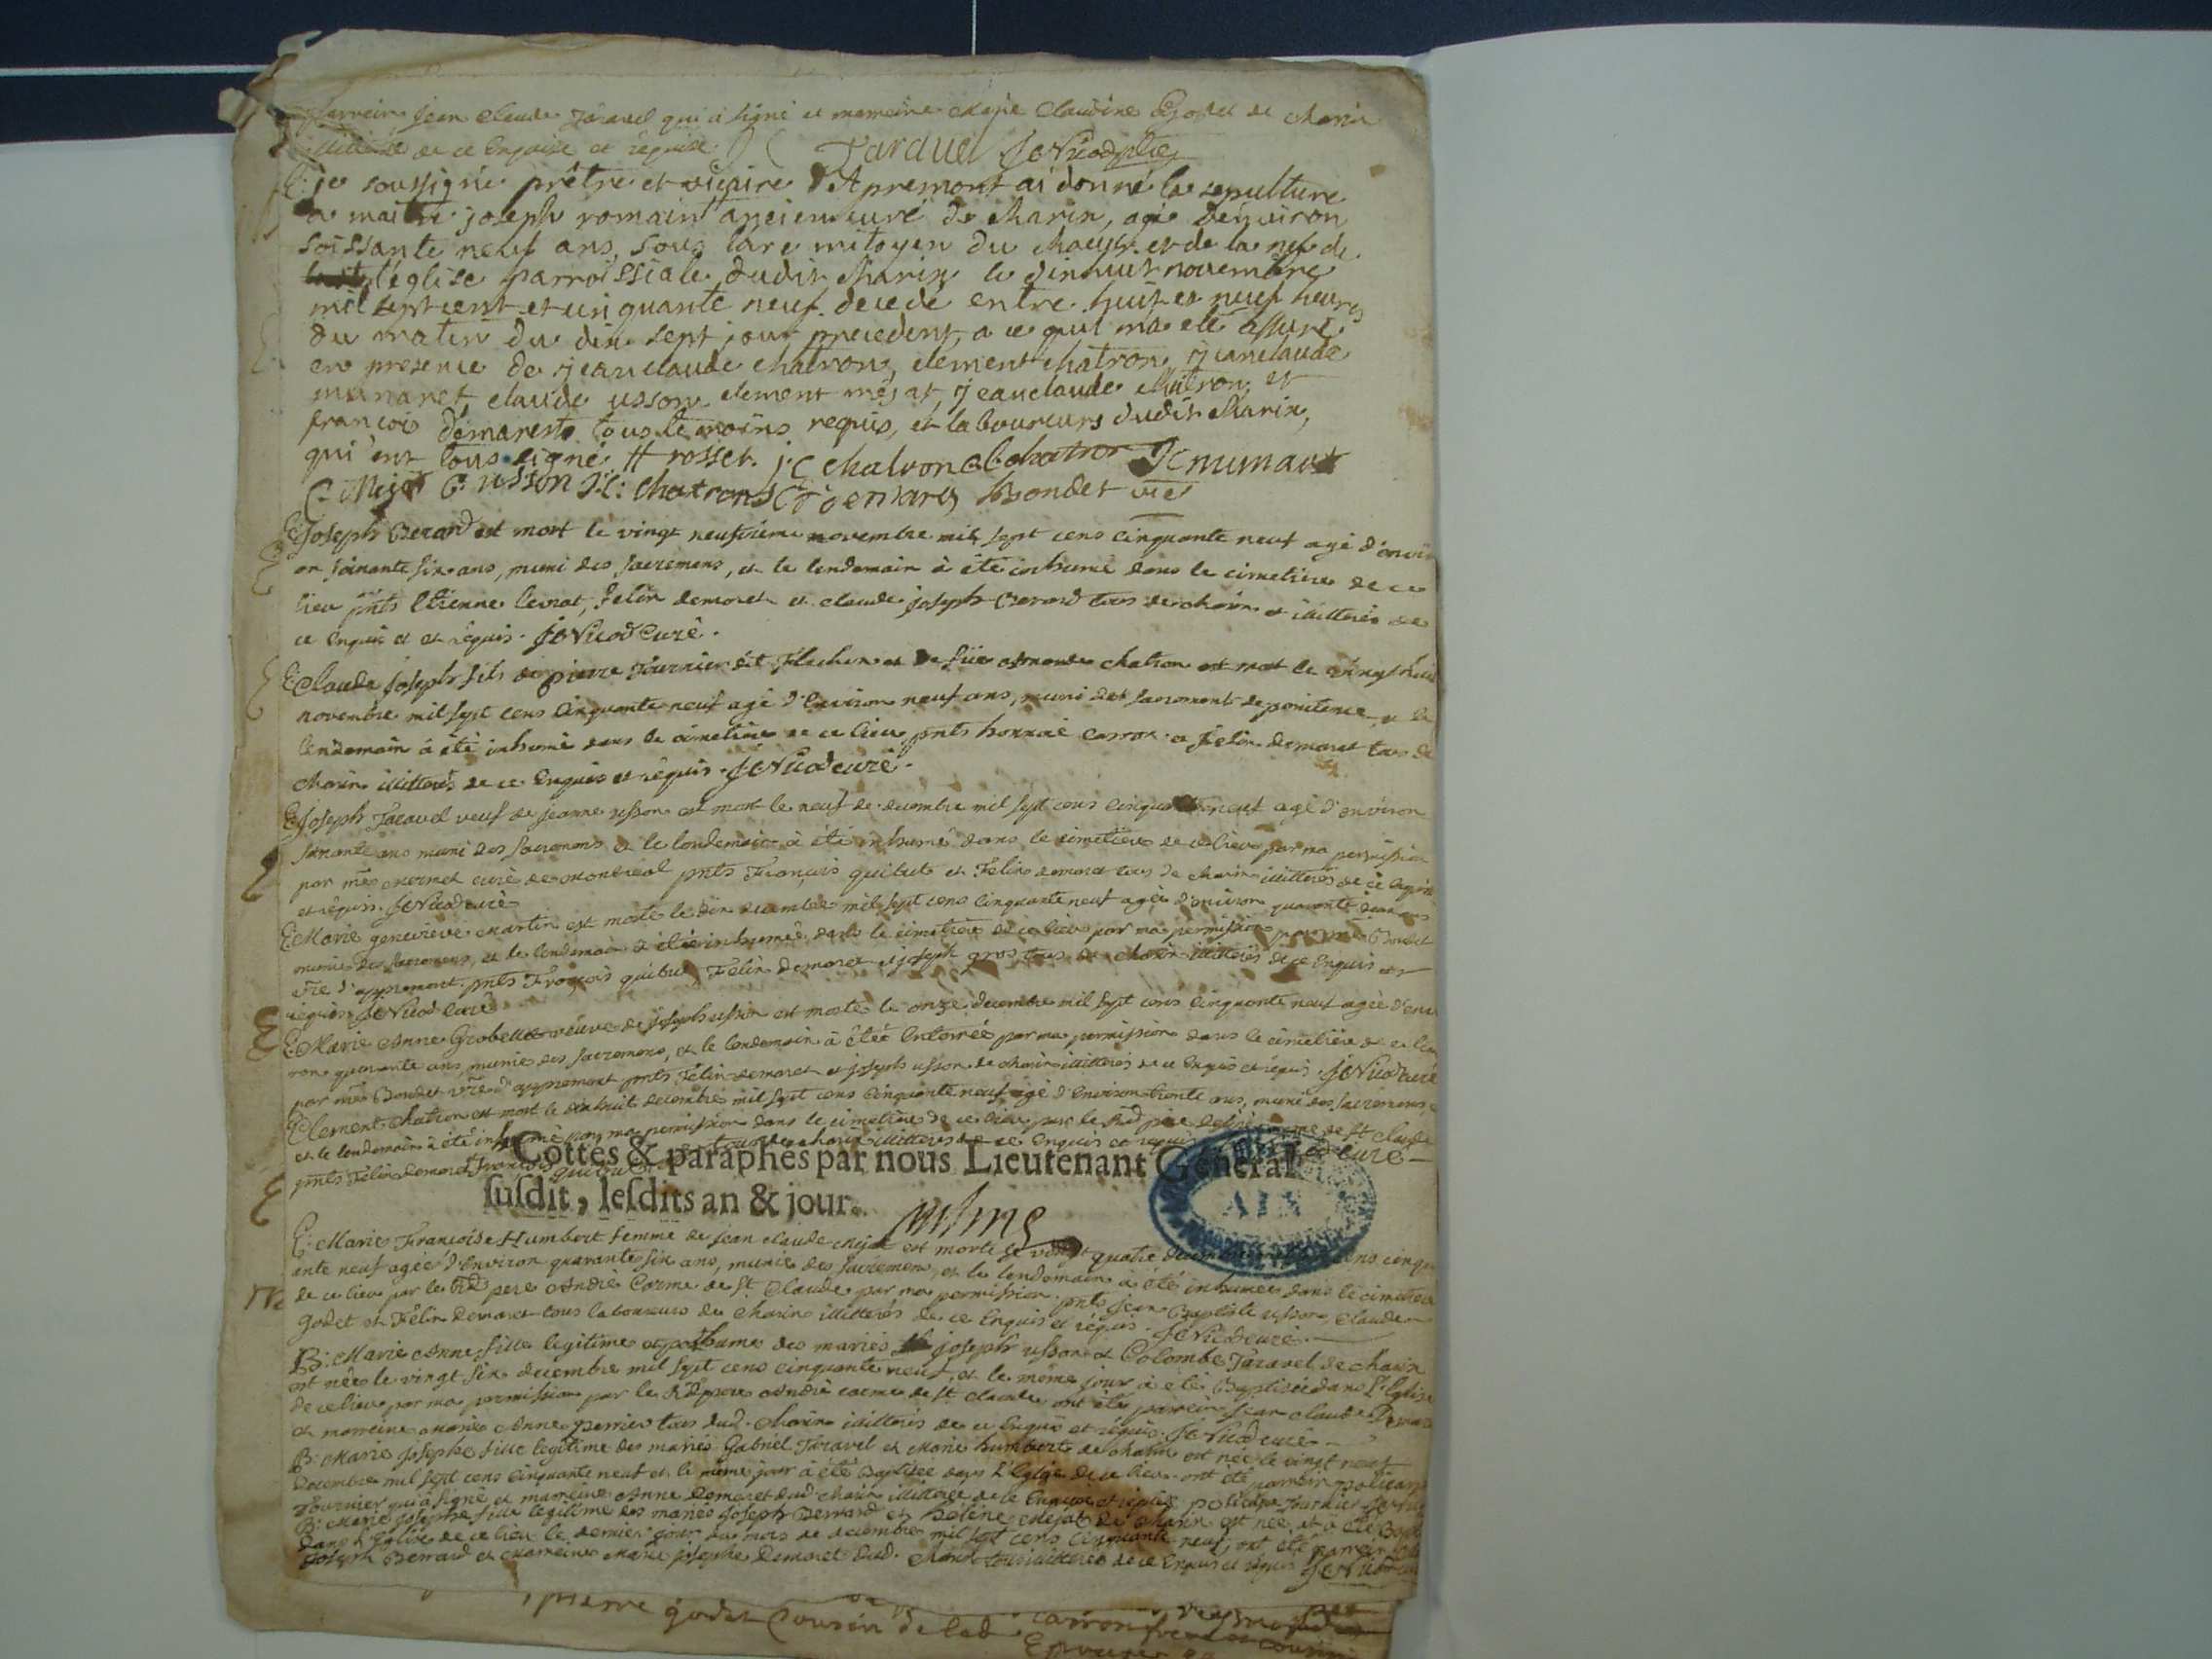 parrein Jean Claude Taravel qui a signé et marreine Marie Claudine Godet de Charix
illitérée de ce Enquise et requise. Taravel JC Nicod
E: je soussigné prêtre et vicaire d'Apremont ai donné la sepulture
a maitre joseph romain ancien curé de Charix, agé denviron
soissante neuf ans, sous larc mitoyen du Choeur et de la nef de
l'église parroissiale dudit Charix le dixhuit novembre
mil sept cent et cinquante neuf decedé entre huit et neuf heures
du matin du dix sept jour precedent, a ce qui ma eté assuré
en presence de jeanclaude chatron, clement chatron, jeanclaude
munaret, claude usson, clement méjat, jeanclaude Chatron, et
françois démarest tous temoins requis, et laboureurs dudit Charix,
qui ont tous signé H rosset. j:C chatron C chatron JC munaret
C Mejat C: usson J:C: chatron F demares Bondet vic
E: Joseph Berard est mort le vingt neufvieme novembre mil sept cens cinquante neuf agé d'envir
on soixante six ans, muni des sacremens, et le lendemain à été inhumé dans le cimetiere de ce
lieu pnts Etienne levrat, Felix demaret et claude joseph Berard tous de charix illiterés de
ce Enquis et requis. JC Nicod Curé.
E: Claude Joseph fils de pierre Tournier dit Flechon et de chatron est mort le vingt huit
novembre mil sept cens cinquante neuf agé d'Environ neuf ans, muni des sacrement de penitence, et le
lendemain à été inhumé dans le cimetiere de ce lieu pnts honnoré carron et Felix demaret tous de
charix illiterés de ce Enquis et requis. JC Nicod curé.
E: Joseph Taravel veuf de jeanne usson est mort le neuf de decembre mil sept cens cinquante neuf agé d'environ
soixante ans muni des sacremens et le lendemain à été inhumé dans le cimetiere de ce lieu par ma permission
par mre mermet curé de Montreal pnts François quibut et Felix demaret tous de charix illiterés de ce Enquis
et requis. JC Nicod curé
E: Marie genevieve martin est morte le dix decembre mil sept cens cinquante neuf agée d'environ quarante deux ans
munie des sacremens, et le lendemain à été inhumée dans le cimetiere de ce lieu par ma permission par mre Bondet
vre d'appremont pnts François quibut Felix demaret et joseph gros tous de charix illiterés de ce Enquis et
requis JC Nicod Curé
E: Marie Anne Grobellet veuve de joseph usson est morte le onze decembre mil sept cens cinquante neuf agée d'envi
ron quarante ans, munie des sacremens, et le lendemain à été Enterrée par ma permission dans le cimetiére de ce lieu
par mre Bondet vre d'appremont pnts Felix demaret et joseph usson de charix illiterés de ce Enquis et requis. JC Nicod curé
E: Clement chatron est mort le dix huit decembre mil sept cens cinquante neuf agé d'Environ trente ans, muni des sacremens,
et le lendemain à été inhumé par ma permission dans le cimetiere de ce lieu par le Rd pere carme de St claude
pnts Felix demaret François quibut tous de charix illiterés de ce Enquis et requis curé
Cottés & paraphés par nous Lieutenant General
susdit, lesdits an & jour.
AIN
E: Marie Françoise Humbert femme de jean claude mejat est morte le vingt quatre decembre cens cinqu
ante neuf agée d'Environ quarante six ans, munie des sacremens, et le lendemain à été inhumée dans le cimetiere
de ce lieu par le Rd pere André Carme de St Claude par ma permission. pnts jean Baptiste usson claude
godet et Felix demaret tous laboureurs de charix illiterés de ce Enquis et requis. JC Nicod curé.
B: Marie Anne fille legitime et posthume des mariés joseph usson et Colombe Taravel de charix
est née le vingt six decembre mil sept cens cinquante neuf, et le même jour à été Baptisée dans l'Eglise
de ce lieu par ma permission par le Rd pere André carme de St claude ont été parrein jean claude Demaret
et marreine marie Anne perrier tous dud. charix illiterés de ce Enquis et requis. JC Nicod curé
B: Marie Josephe fille legitime des mariés Gabriel Taravel et Marie humbert de charix est née le vingt neuf
decembre mil sept cens cinquante neuf et le même jour à été Baptisée dans l'Eglise de ce lieu ont été parrein policarpe
Tournier qui à signé et marreine Anne Demaret dud. charix illiterée de ce Enquise et requise policarpe Tournier
B: Marie josephe fille legitime des mariés joseph Berrard et heléne mejat de charix est née et à été
dans l'Eglise de ce lieu le dernier jour du mois de decembre mil sept cens cinquante neuf, ont été parrein
joseph Berrard et marreine marie josephe Demaret dud. charix tous illiterés de ce Enquis et requis JC Nicod
pierre godet Cousin de lad. carron